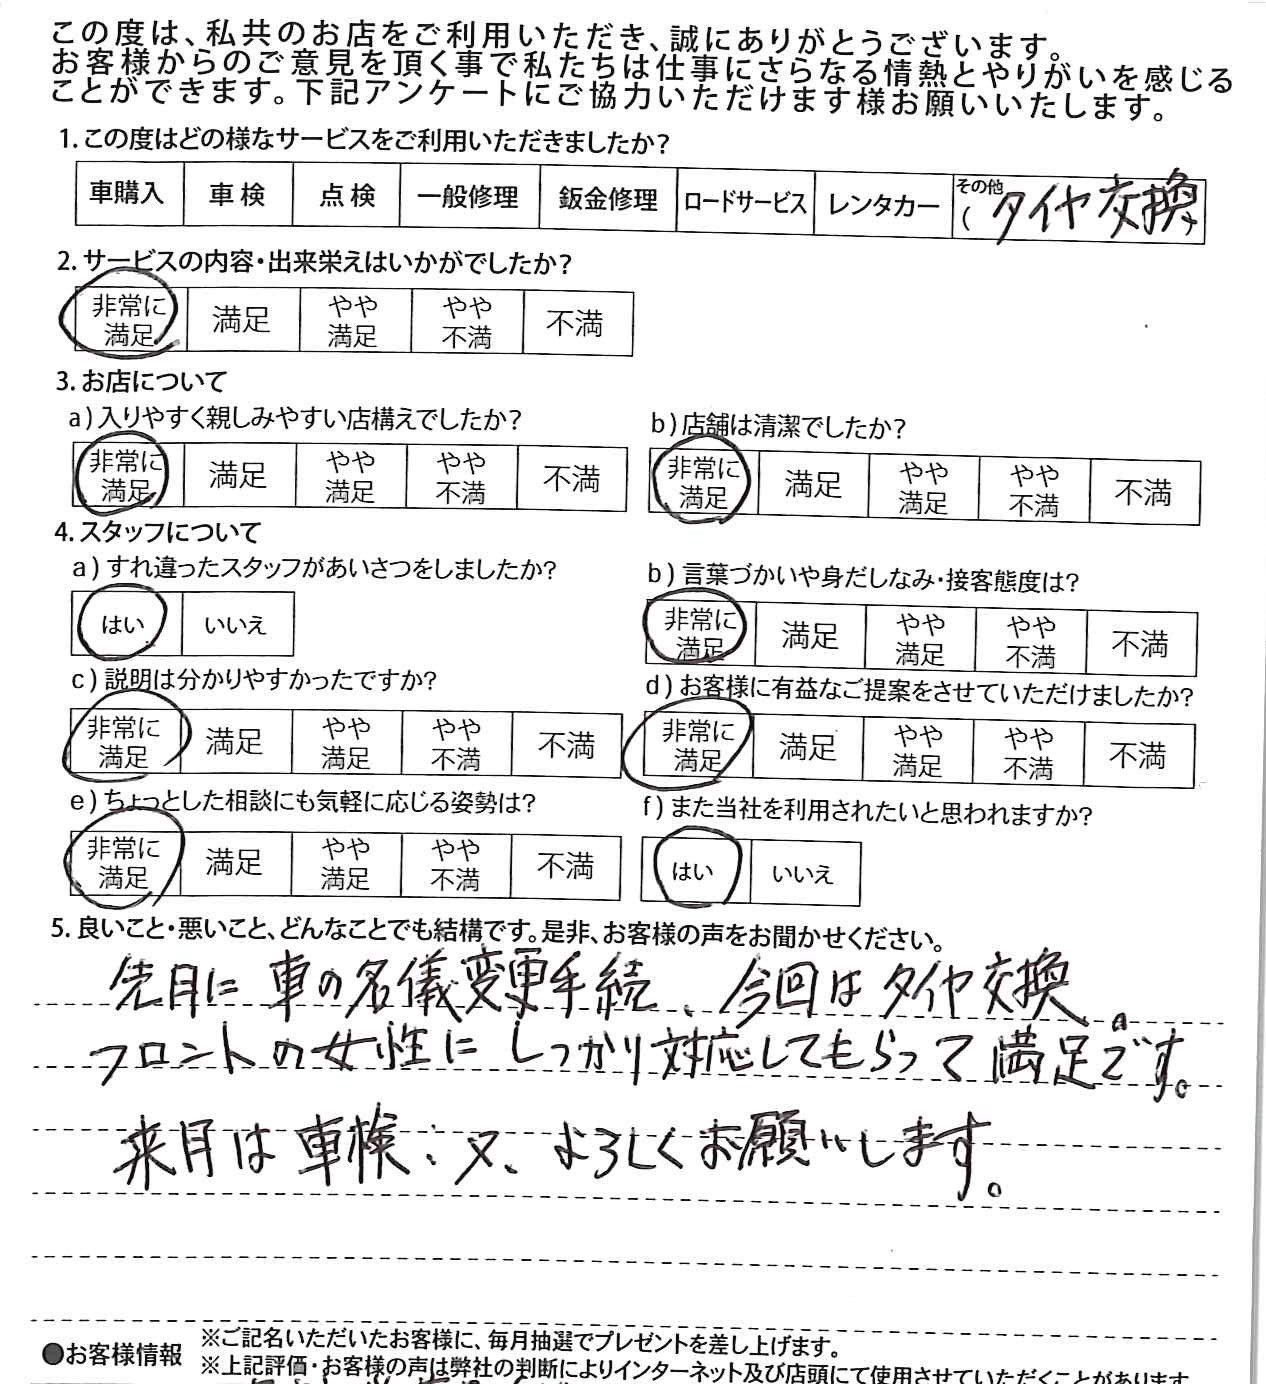 この度は、私共のお店をご利用いただき、誠にありがとうございます。
お客様からのご意見を頂く事で私たちは仕事にさらなる情熱とやりがいを感じる
ことができます。下記アンケートにご協力いただけます様お願いいたします。
1. この度はどの様なサービスをご利用いただきましたか?
車購入 車検 点検 一般修理 鈑金修理 ロードサービス レンタカー その他 ( タイヤ交換 )
2. サービスの内容・出来栄えはいかがでしたか?
非常に満足 満足 やや満足 やや不満 不満
3. お店について
a) 入りやすく親しみやすい店構えでしたか?
非常に満足 満足 やや満足 やや不満 不満
b) 店舗は清潔でしたか?
非常に満足 満足 やや満足 やや不満 不満
4. スタッフについて
a) すれ違ったスタッフがあいさつをしましたか?
はい いいえ
b) 言葉づかいや身だしなみ・接客態度は?
非常に満足 満足 やや満足 やや不満 不満
c) 説明は分かりやすかったですか?
非常に満足 満足 やや満足 やや不満 不満
d) お客様に有益なご提案をさせていただけましたか?
非常に満足 満足 やや満足 やや不満 不満
e) ちょっとした相談にも気軽に応じる姿勢は?
非常に満足 満足 やや満足 やや不満 不満
f) また当社を利用されたいと思われますか?
はい いいえ
5. 良いこと・悪いこと、どんなことでも結構です。是非、お客様の声をお聞かせください。
先月に車の名儀変更手続、今回はタイヤ交換。
フロントの女性にしっかり対応してもらって満足です。
来月は車検、又、よろしくお願いします。
●お客様情報
※ご記名いただいたお客様に、毎月抽選でプレゼントを差し上げます。
※上記評価・お客様の声は弊社の判断によりインターネット及び店頭にて使用させていただくことがあります